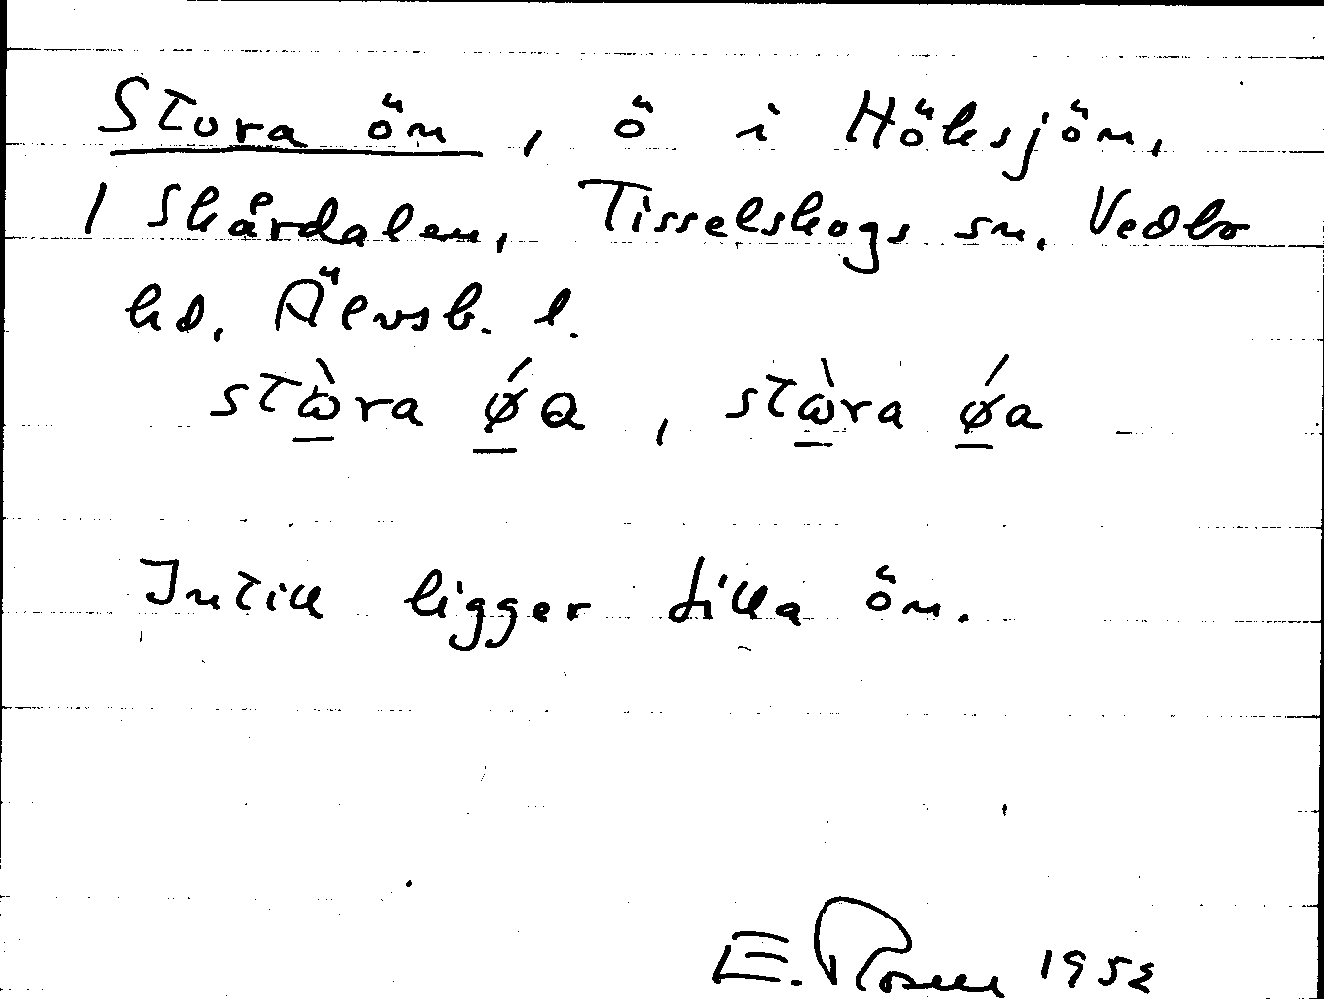 Stora ön, ö i Höksjön,
1 Skårdalen, Tisselskogs sn, Vedbo
hd, Älvsb. l.
stὼ̱ra ǿ̱a, stὼ̱ra ǿ̱a
Intill ligger Lilla ön.
E. Rosell 1952